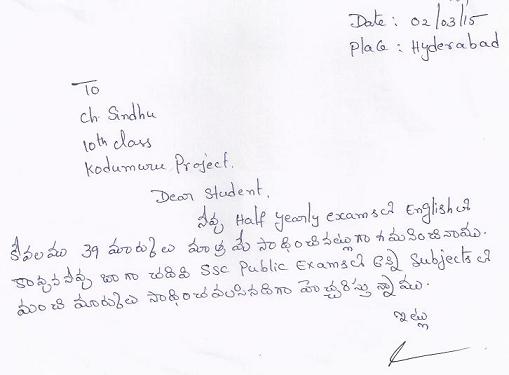 Date : 02/03/15
Place : Hyderabad
To
Ch Sindhu
10th class
Kodumuru Project.
Dear Student,
నీవు Half yearly examsలో Englishలో
కేవలము 39 మార్కులు మాత్రమే సాధించినట్లుగా గమనించినాము.
కావున నీవు బాగా చదివి SSC Public Examsలో అన్ని Subjectsలో
మంచి మార్కులు సాధించవలసినదిగా హెచ్చరిస్తున్నాము.
ఇట్లు